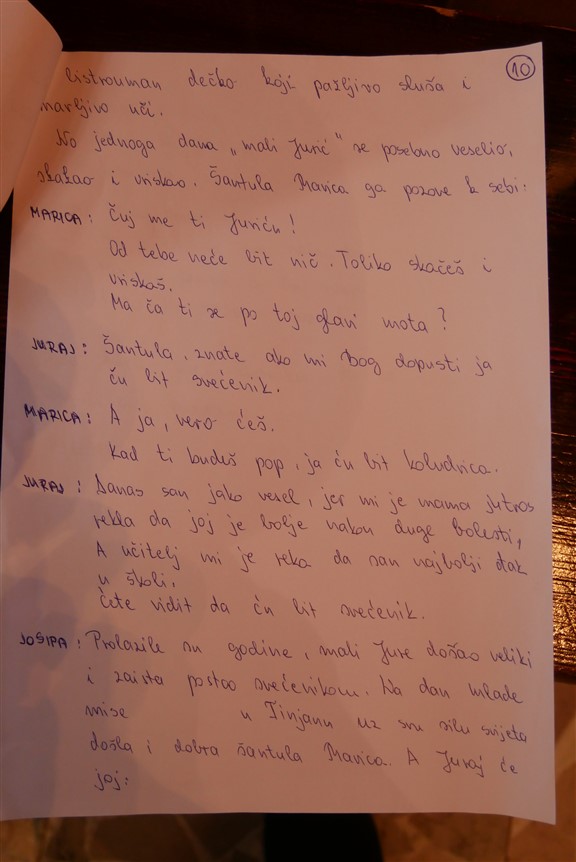 10
bistrouman dečko koji pažljivo sluša i
marljivo uči.
No jednoga dana „mali Jurić" se posebno veselio,
skakao i vriskao. Šantula Marica ga pozove k sebi:
MARICA: Čuj me ti Juriću!
Od tebe neće bit nič. Toliko skačeš i
vriskaš.
Ma ča ti se po toj glavi mota?
JURAJ: Šantula, znate ako mi Bog dopusti ja
ću bit svećenik.
MARICA: A ja, vero ćeš.
Kad ti budeš pop, ja ću bit koludrica.
JURAJ: Danas san jako vesel, jer mi je mama jutros
rekla da joj je bolje nakon duge bolesti,
A učitelj mi je reka da san najbolji đak
u školi.
Ćete vidit da ću bit svećenik.
JOSIPA: Prolazile su godine, mali Jure došao veliki
i zaista postao svećenikom. Na dan mlade
mise u Tinjanu uz svu silu svijeta
došla i dobra šantula Marica. A Juraj će
joj: